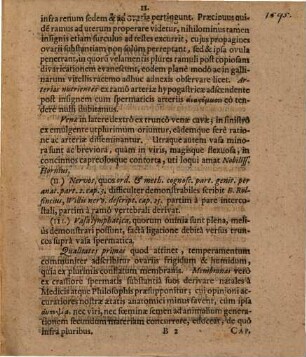 II.
1595.
infra renum sedem & ad ovaria pertingunt. Præcipuus quidem
ramus ad uterum properare videtur, nihilominus tamen
insignis etiam surculus ad testes excurrit, cujus propagines
ovarii substantiam non solùm perreptant, sed & ipsa ovula
penetrant, in quorũ velamentis plures ramuli post copiosam
divaricationem evanescunt, eodem planè modo ac in gallinarum
vitellis recenso adhuc adnatis observare licet. Arterias
nutrientes ex ramô arteriæ hypogastricæ adscendente
post insignem cum spermaticis arteriis eò tendere
nulli dubitamus.
Venæ in latere dextrô ex truncô venæ cavæ; in sinistrô
ex emulgente utplurimum oriuntur, eâdemque ferè ratione
ac arteriæ disseminantur. Utraque autem vasa minora
sunt ac breviora, quàm in viris, magisque flexuosa, in
concinnos capreolosque contorta, uti loqui amat Nobiliss.
Hornius.
(II.) Nervos, quos ord. & meth. cognosc. part. genit. per
anat. part. 2. cap. 3. difficulter demonstrabiles scribit B. Rolfincius,
Willis nerv. descript. cap. 25. partim à pare intercostali,
partim à ramô vertebrali derivat.
(III.) Vasa lymphatica, quorum ostium omnia plena, melius
demonstrari possunt, factâ ligatione debitâ versus truncos
suprà vasa spermatica.
Qualitates primas quod attinet, temperamentum
communiter adscribitur ovariis frigidum & humidum,
quia ex plurimis constatum membranis. Membranas verò
ex crassiore spermatis substantiâ suos derivare natales à
Medicis atque Philosophis præsupponitur; cui opinioni accuratiores
nostræ ætatis anatomici minus favent, cum ipsa
nec viri, nec fœminæ semen ad animalium generationem
secundùm materiam concurrere, edoceat, de quô
infra pluribus.
B 2
CAP.